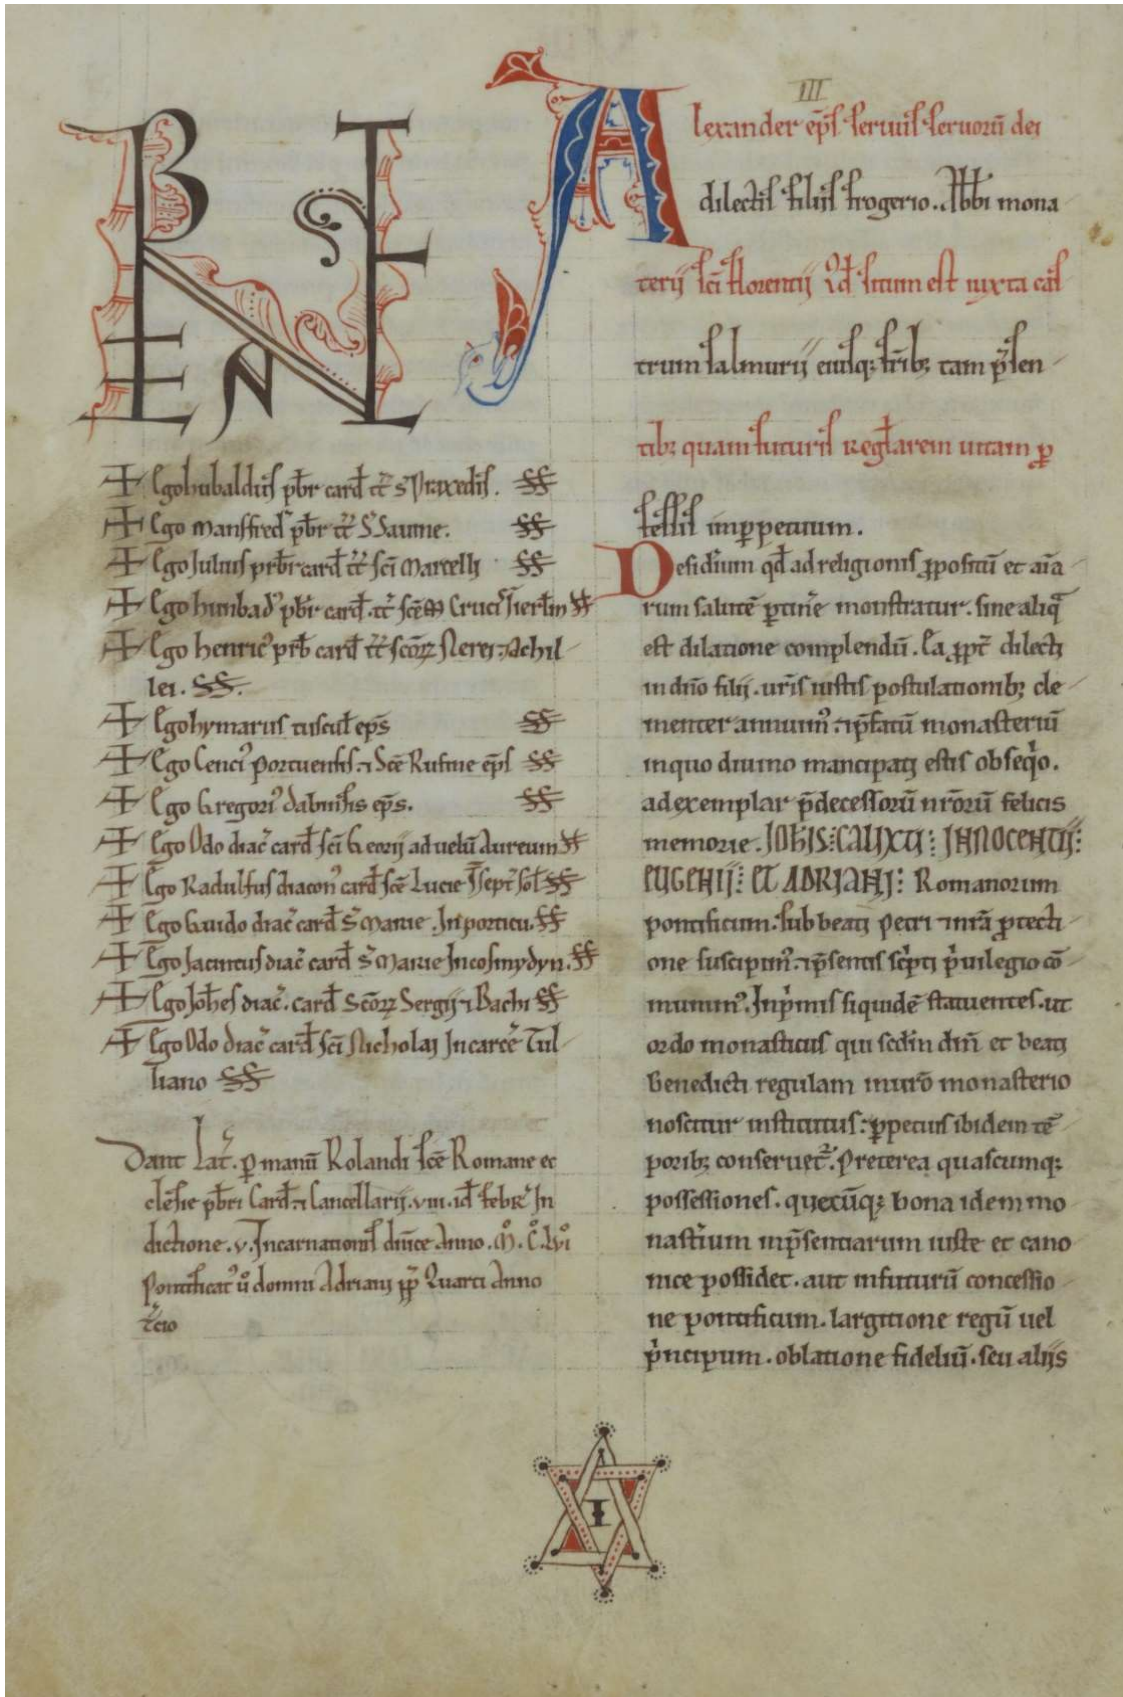 ✠ Ego hubaldus p̄br card̄ tt̄ s̄ Praxedis. SS
✠ Ego Manfred᾽ p̄br tt̄ S̄ Sauine. SS
✠ Ego Julius prb̄r card̄ tt̄ sc̄i Marcelli SS
✠ Ego hunbad᾽ pb̄r card̄. tt̄ sc̄e Cruci᾽ Jerl̄m SS
✠ Ego henric᾽ prb̄ card̄ tt̄ sc̄oꝝ Nerei ⁊ Achil
lei. SS.
✠ Ego hymarus tuscul̄ ep̄s SS
✠ Ego Cenci᾽ Portuensis. ⁊ Sc̄e Rufine ep̄s SS
✠ Ego Gregori᾽ Sabinēsis ep̄s. SS
✠ Ego Odo diac̄ card̄ sc̄i Georij ad uelū Aureum SS
✠ Ego Radulfus diacon᾽ card̄ sc̄e Lucie Jsept̄ sol̄ SS
✠ Ego Guido diac̄ card̄ s̄ Marie. Jnporticu. SS
✠ Ego Jacintus diac̄ card̄ s̄ Marie Jncosmydyn. SS
✠ Ego Joh̄es diac̄. card̄ Sc̄oꝝ Sergij ⁊ Bachi SS
✠ Ego Odo diac̄ card̄ sc̄i Nicholai Jncarcēe Tul
liano SS
Dant Lat̄. ꝑ manū Rolandi sc̄e Romane ec
clēsie pb̄ri Card̄. ⁊ Cancellarij. viii. id̄ febr̄ Jn
dictione. v. Jncarnationis diūice Anno. M̊. C̊. Lvi̊
Pontificat᾽ ů domni Adriani pp̄ Quarti Anno
t̄cio
III
Alexander ep̄s seruus seruorū dei
dilectis filijs frogerio. Abb̄i mona
terij sc̄i florentij qd̄ situm est iuxta cas
trum salmurij eiusq; frībꝫ tam p̄sen
tibꝫ quam futuris regl̄arem uitam ꝓ
fessis imꝑpetuum.
Desid̄ium qd̄ ad religionis ꝓpositū et aīa
rum salutē ꝑtinēe monstratur. sine aliq̄
est dilatione complendū. Ea ꝓpt̄ dilecti
in dn̄o filij. ur̄is iustis postulationibꝫ cle
menter annuim᾽. ⁊ p̄fatū monasteriū
inquo diuino mancipati estis obseqͥo.
ad exemplar p̄decessorū nr̄orū felicis
memorie. JOHIS: CALIXTI: JNNOCENTIJ:
EUGENIJ: ET ADRIANJ: Romanorum
pontificum. sub beati Petri ⁊ nr̄a ꝓtecti
one suscipim᾽. ⁊ p̄sentis sc̄pti pͥuilegio cō
munim᾽. Jnpͥmis siquidē statuentes. ut
ordo monasticus qui sed̄m dm̄ et beati
Benedicti regulam inur̄o monasterio
noscitur institutus: ꝑpetuis ibidem tē
poribꝫ conseruet̄. Preterea quascumq;
possessiones. quecūq; bona idem mo
nast̄ium inp̄sentiarum iuste et cano
nice possidet. aut infuturū concessio
ne pontificum. largitione regū uel
pͥncipum. oblatione fideliū. seu alijs
I